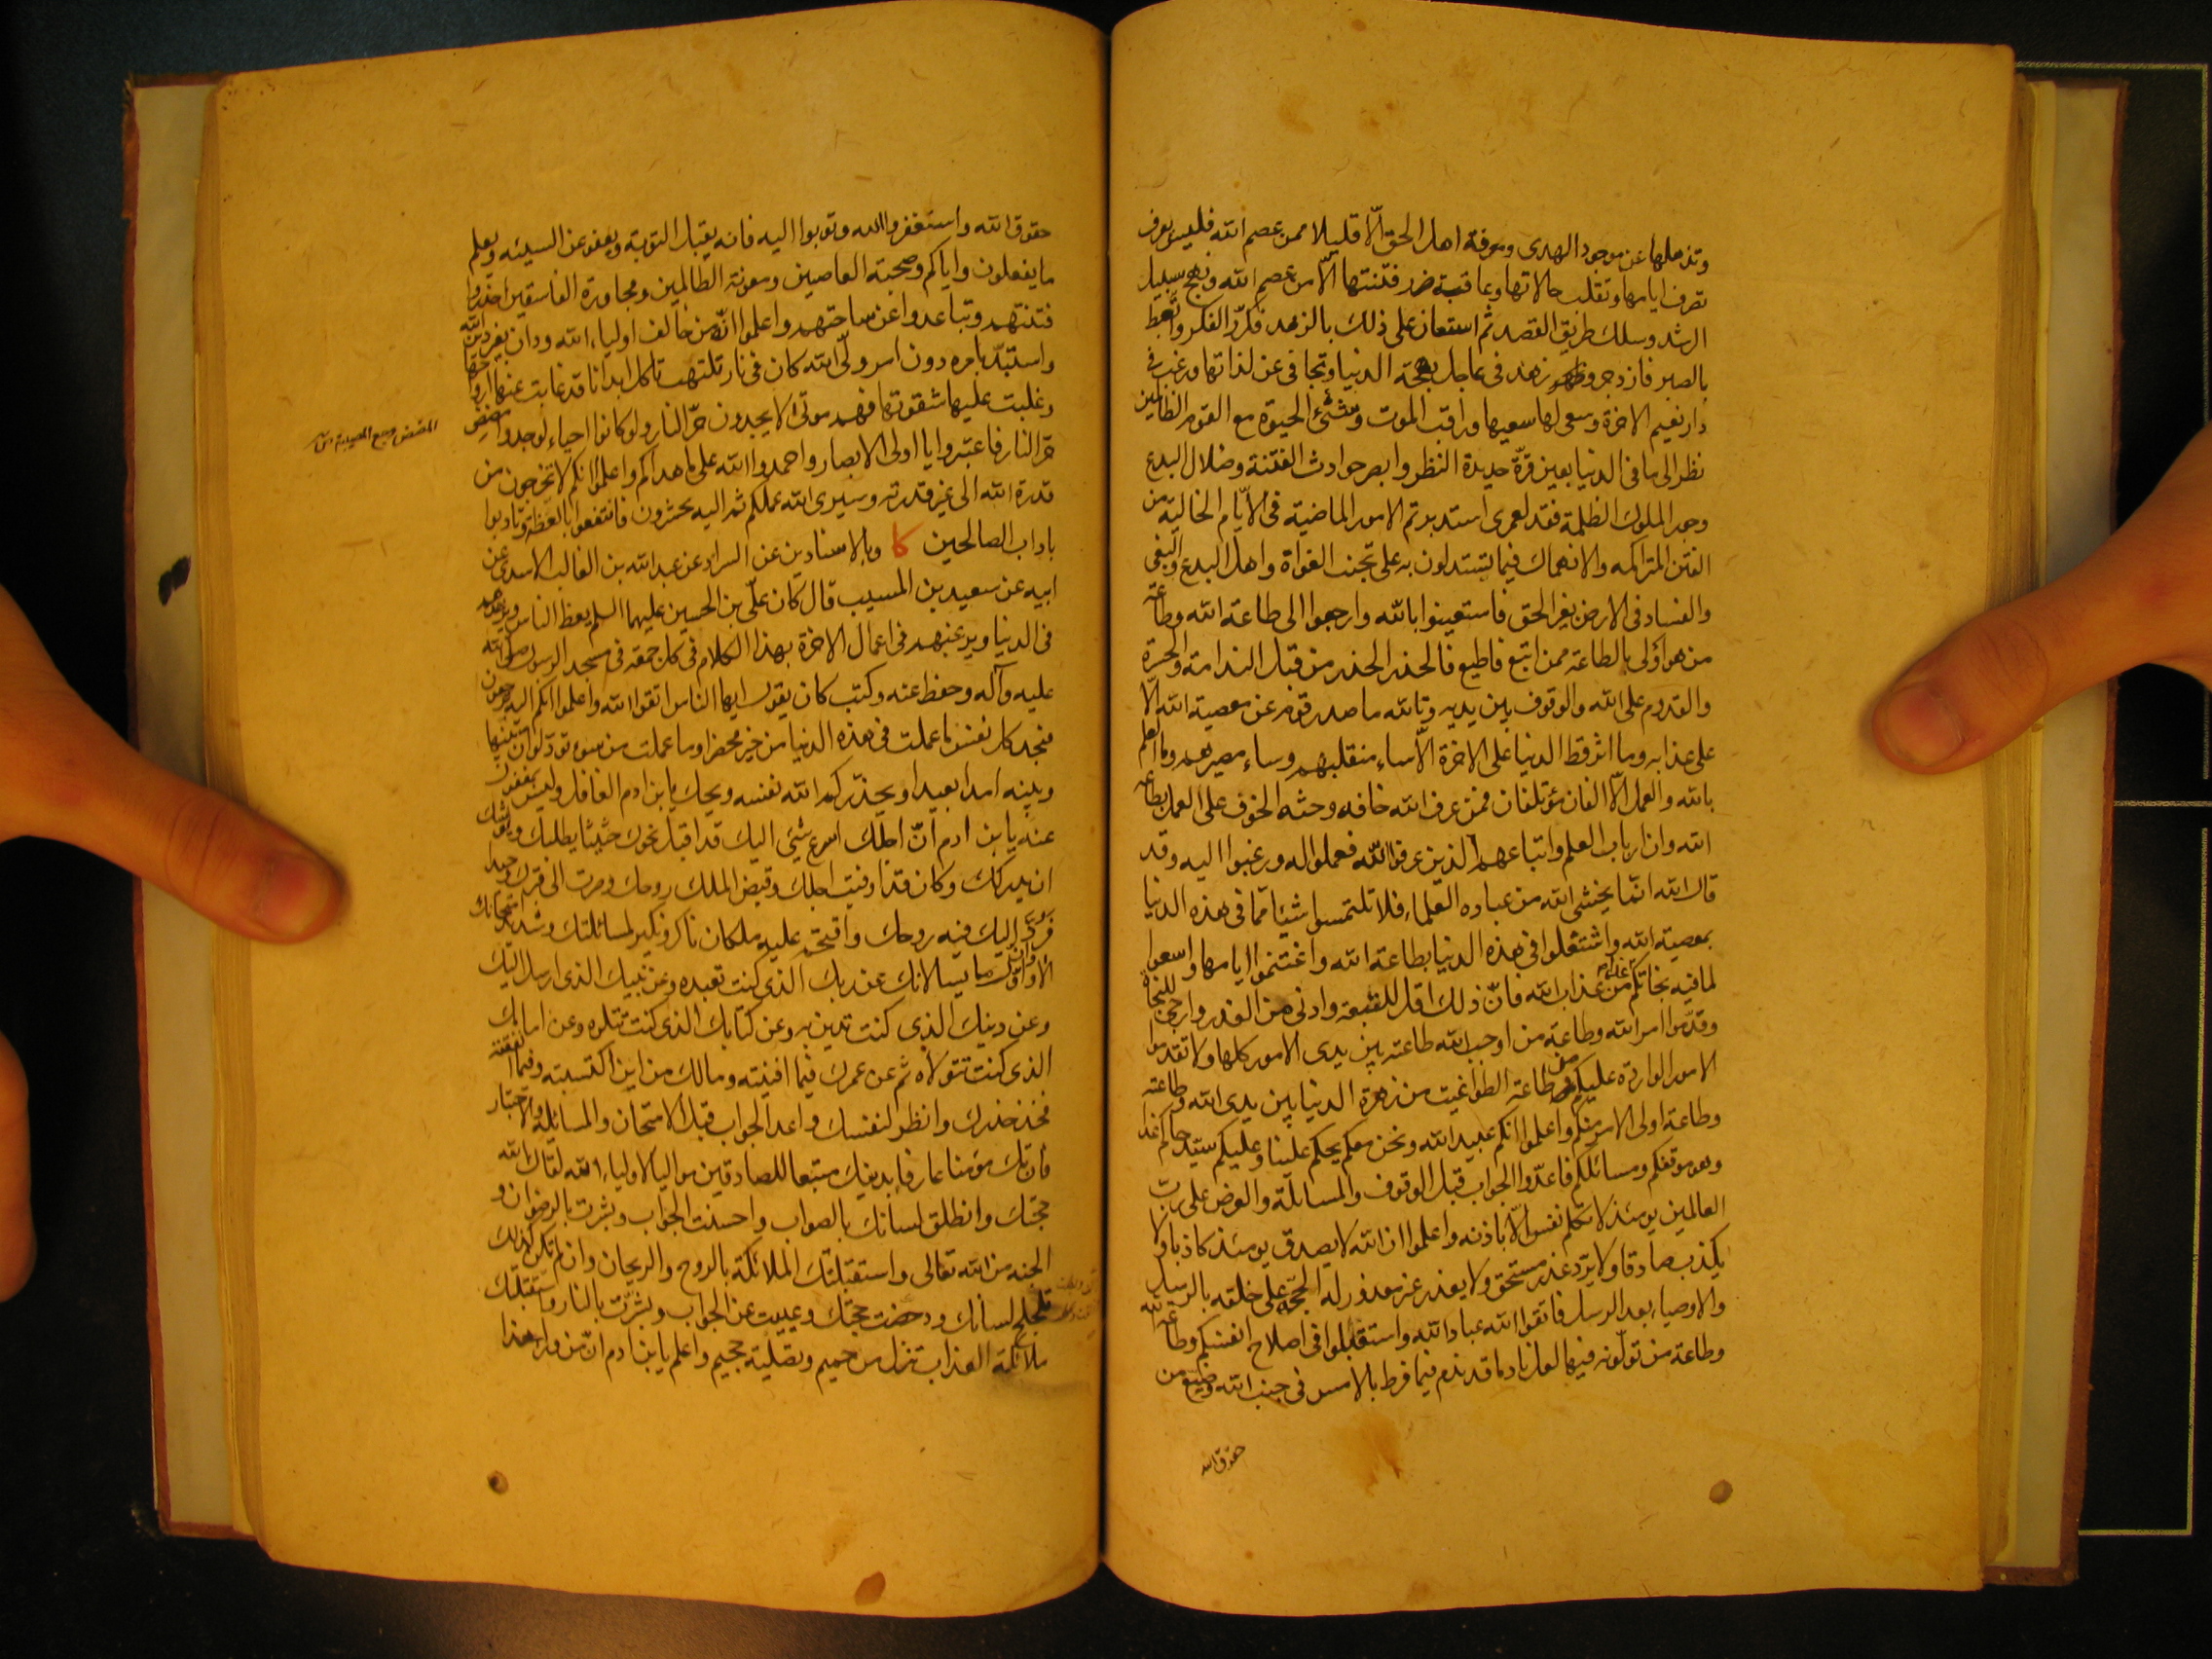 وتذهلها عن موجود الهدى ومعرفة اهل الحق الّا قليلا ممن عصم الله فليس يعرف
تصرف ايامها وتقلب حالاتها وعاقبة ضرر فتنتها الّا من عصم الله ونهج سبيل
الرشد وسلك طريق القصد ثم استعان على ذلك بالزهد فكرّر الفكر واتعظ
بالصبر فازدجر وزهد فى عاجل بهجة الدنيا وتجافى عن لذاتها ورغب فى
دار نعيم الاخرة وسعى لها سعيها وراقب الموت وشنئ الحيوة مع القوم الظالمين
نظر الى ما فى الدنيا بعين قرّة حديدة النظر وابصر حوادث الفتنة وضلال البدع
وجور الملوك الظلمة فقد لعمرى استدبرتم الامور الماضية فى الايّام الخالية من
الفتن المتراكمه والانهماك فيما تستدلون به على تجنب الغواة واهل البدع والبغى
والفساد فى الارض بغير الحق فاستعينوا بالله وارجعوا الى طاعة الله وطاعة
من هو اولى بالطاعة ممن اتبع فاطيع فالحذر الحذر من قبل الندامة والحسرة
والقدوم على الله والوقوف بين يديه وتالله ما صدر قوم عن معصية الله الّا
على عذابه وما اثر قط الدنيا على الاخرة الّا ساء منقلبهم وساء مصيرهم وما العلم
بالله والعمل الّا الفان مؤتلفان فمن عرف الله خافه وحثه الخوف على العمل بطاعة
الله وان ارباب العلم واتباعهم الذين عرفوا الله فعملوا له ورغبوا اليه وقد
قال الله انّما يخشى الله من عباده العلماء فلا تلتمسوا شيئا مما فى هذه الدنيا
بمعصية الله واشتغلوا فى هذه الدنيا بطاعة الله واغتنموا ايامها واسعوا
لما فيه نجاتكم غدا من عذاب الله فانّ ذلك اقل للتبعة وادنى من العذر وارجى للنجاة
وقدّموا امر الله وطاعة من اوجب الله طاعته بين يدى الامور كلها ولا تقدموا
الامور الواردة عليكم من طاعة الطواغيت من زهرة الدنيا بين يدى الله وطاعته
وطاعة اولى الامر منكم واعلموا انكم عبيد الله ونحن معكم يحكم علينا وعليكم سيّد حاكم غدا
وهو موقفكم ومسائلكم فاعدّوا الجواب قبل الوقوف والمسائلة والعرض على رب
العالمين يومئذ لا تكلم نفس الّا باذنه واعلموا ان الله لا يصدق يومئذ كاذبا ولا
يكذب صادقا ولا يردّ عذر مستحق ولا يعذر غير معذور له الحجّة على خلقه بالرسل
والاوصياء بعد الرسل فاتقوا الله عباد الله واستقبلوا فى اصلاح انفسكم وطاعة الله
وطاعة من تولّونه فيها لعل نادما قد ندم فيما فرط بالامس فى جنب الله وضيّع من
حقوق الله
حقوق الله واستغفروا الله وتوبوا اليه فانه يقبل التوبة ويعفو عن السيئه ويعلم
ما يفعلون واياكم وصحبة العاصين ومعونة الظالمين ومجاورة الفاسقين احذروا
فتنتهم وتباعدوا عن ساحتهم واعلموا انّه من خالف اولياء الله ودان بغير دين الله
واستبدّ بامره دون امر ولىّ الله كان فى نار تلتهب تاكل ابدانا قد غابت عنها ارواحها
وغلبت عليها شقوتها فهم موتى لا يجدون حرّ النار ولو كانوا احياء لوجدوا مضض
حرّ النار فاعتبروا يا اولى الابصار واحمدوا الله على ما هداكم واعلموا انكم لا تخرجون من
قدرة الله الى غير قدرته وسيرى الله عملكم ثم اليه تحشرون فانتفعوا بالعظة وتادبوا
باداب الصالحين كا وبالاسنادين عن السراد عن عبد الله بن الغالب الاسدى عن
ابيه عن سعيد بن المسيب قال كان علىّ بن الحسين عليهما السلم يعظ الناس ويزهدهم
فى الدنيا ويرغبهم فى اعمال الاخرة بهذا الكلام فى كل جمعة فى مسجد الرسول صلى الله
عليه وآله وحفظ عنه وكتب كان يقول ايها الناس اتقوا الله واعلموا انكم اليه ترجعون
فتجد كل نفس ما عملت فى هذه الدنيا من خير محضرا وما عملت من سوء تودّ لو ان بينها
وبينه امدا بعيدا ويحذّركم الله نفسه ويحك يابن ادم الغافل وليس بمغفول
عنه يا بن ادم انّ اجلك اسرع شئ اليك قد اقبل نحوك حثيثا يطلبك ويوشك
ان يدركك وكان قد اوفيت اجلك وقبض الملك روحك وصرت الى قبرك وحيدا
فردّ اليك فيه روحك واقتحم عليك ملكان ناكر ونكير لمسائلتك وشديد امتحانك
الا وان اول ما يسالانك عن ربك الذى كنت تعبده وعن نبيك الذى ارسل اليك
وعن دينك الذى كنت تدين به وعن كتابك الذى كنت تتلوه وعن امامك
الذى كنت تتولاه ثم عن عمرك فيما افنيته ومالك من اين اكتسبته وفيما انفقته
فخذ حذرك وانظر لنفسك واعد الجواب قبل الامتحان والمسائلة والاختبار
فان تك مؤمنا عارفا بدينك متبعا للصادقين مواليا لاولياء الله لقّاك الله
حجتك وانطلق لسانك بالصواب واحسنت الجواب وبشرت بالرضوان و
الجنه من الله تعالى واستقبلتك الملائكة بالروح والريحان وان لم تكن كذلك
تلجلج لسانك ودحضت حجتك وعييت عن الجواب وبشّرت بالنار واستقبلتك
ملائكة العذاب بنزل من حميم وتصلية جحيم واعلم يا بن ادم انّ من وراء هذا
المضض وجع المصيبة